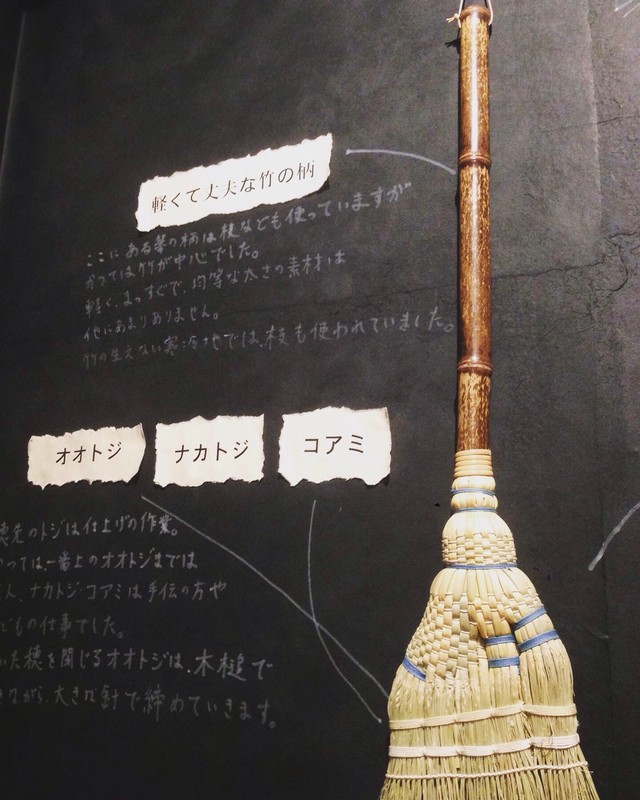 軽くて丈夫な竹の柄
ここにある箒の柄は枝なども使っていますが
かつては竹が中心でした。
軽く、まっすぐで、均等な太さの素材は
他にあまりありません。
竹の生えない寒冷地では、枝も使われていました。
オオトジ
ナカトジ
コアミ
穂先のトジは仕上げの作業。
つては、一番上のオオトジまでは
人、ナカトジ・コアミは手伝の方や
どもの仕事でした。
いた穂を閉じるオオトジは、木槌で
きながら、大きな針で締めていきます。